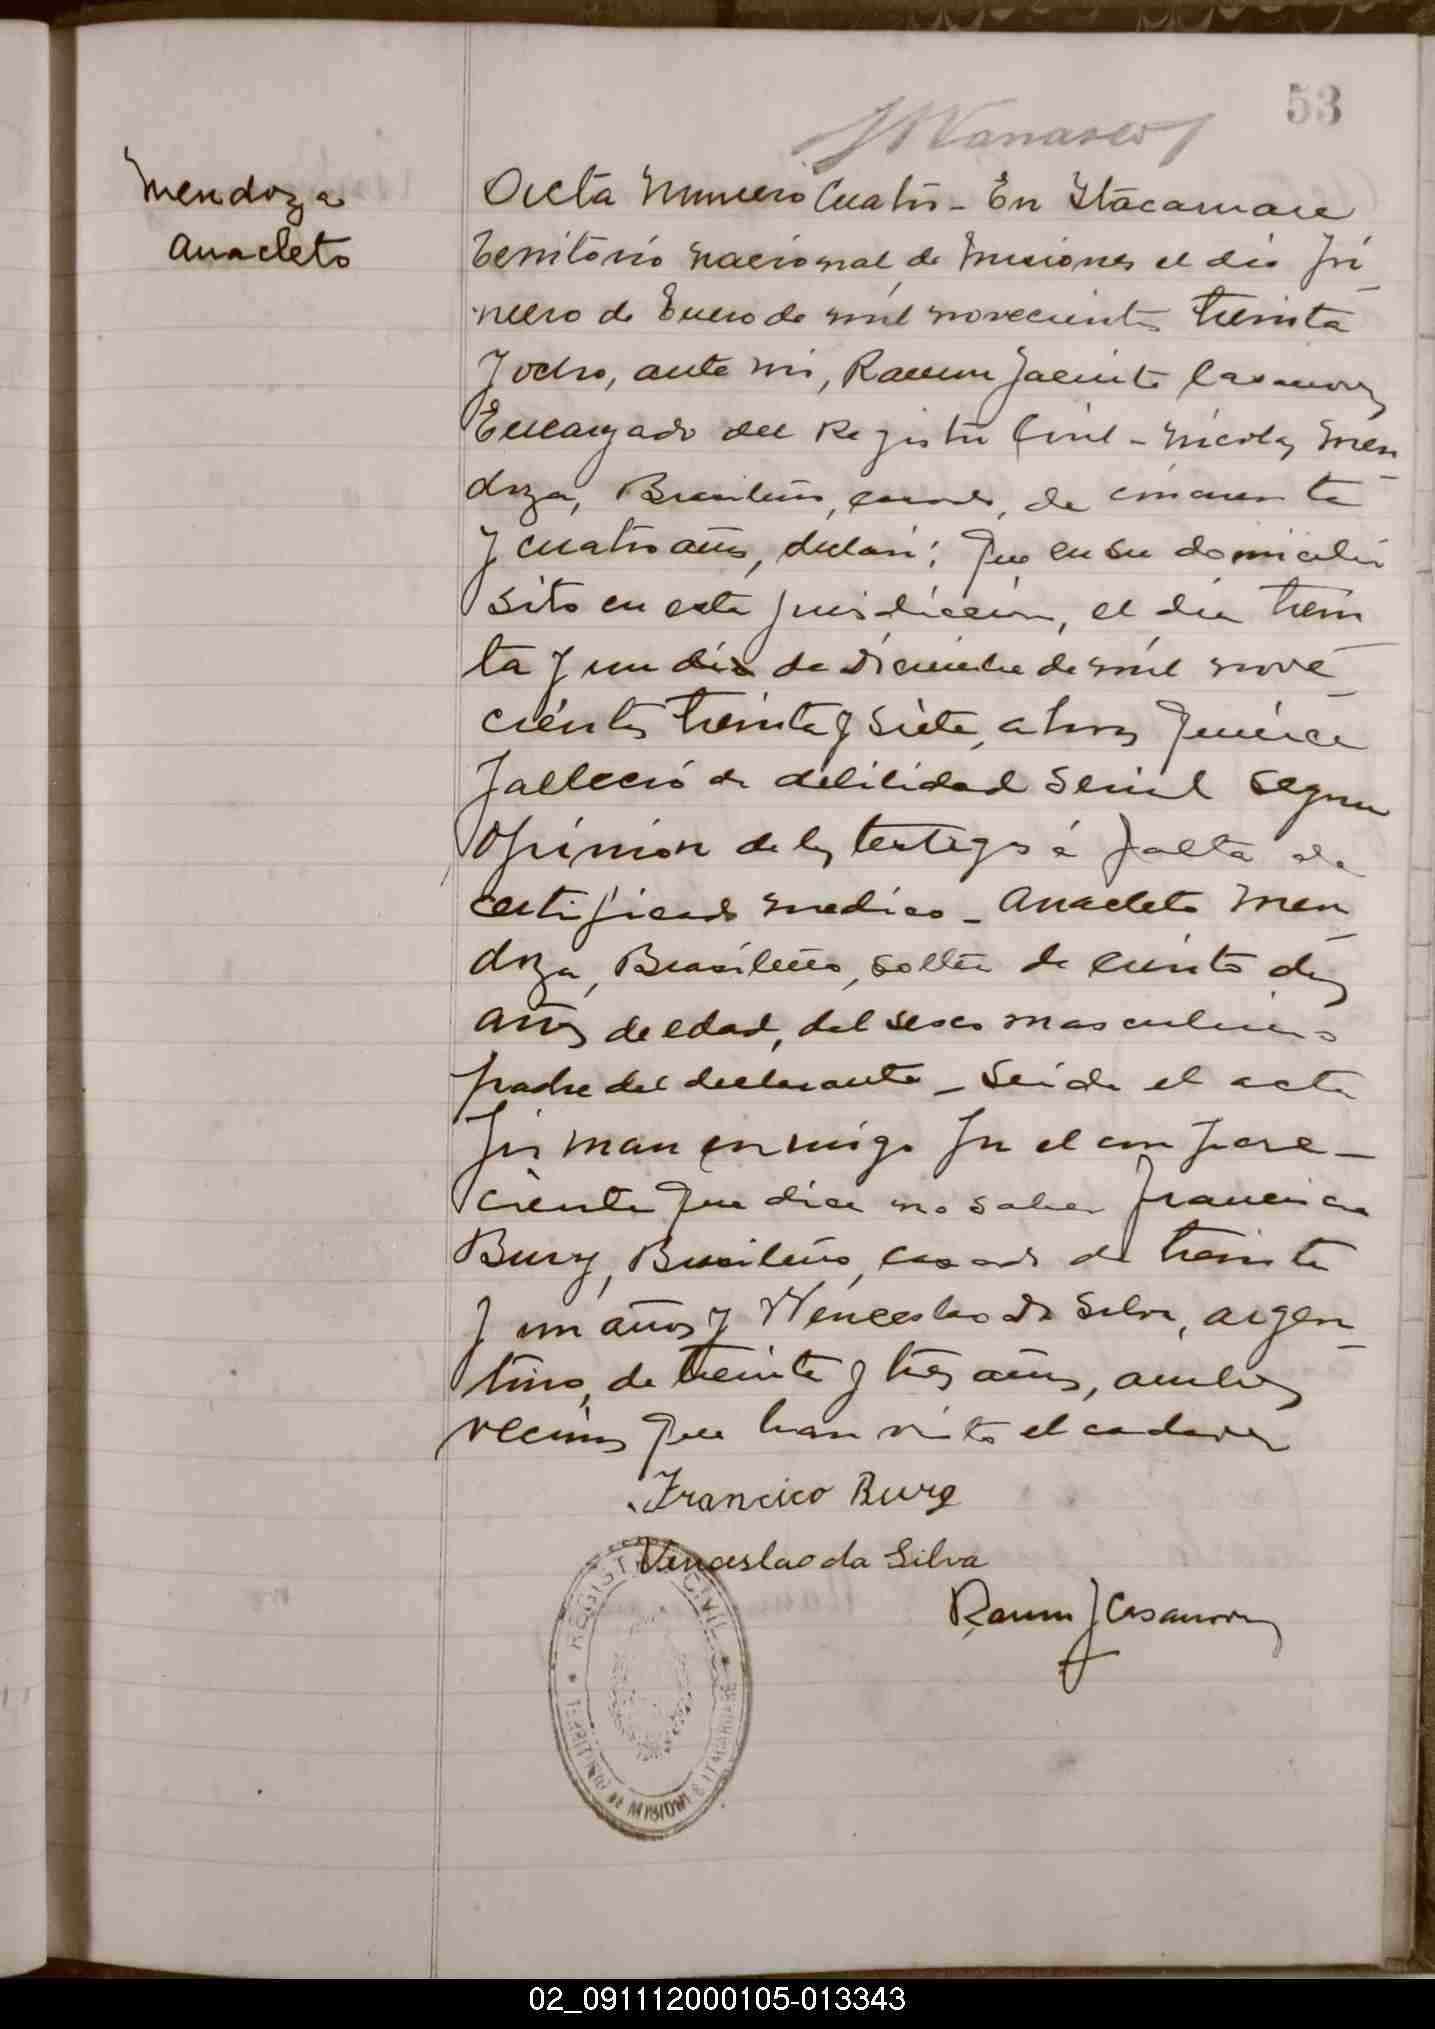 53
Mendoza
Anacleto
Acta Numero Cuatro - En Itacaruare
Territorio Nacional de Misiones el dia Pri-
mero de Enero de mil novecientos treinta
y ocho, ante mi, Ramon Jacinto Casanova
Encargado del Registro Civil - Nicolas Men-
doza, Brasileño, casado, de cincuenta
y cuatro años, declaró: Que en su domicilio
sito en esta jurisdicción, el dia trein
ta y un dia de Diciembre de mil nove-
cientos treinta y siete, a horas quince
falleció de debilidad senil segun
opinión de los testigos á falta de
certificado medico - Anacleto Men-
doza, Brasileño, soltero de ciento diez
años de edad, del sexo masculino
padre del declarante - Leida el acta
firman conmigo por el compare-
ciente que dice no saber Francisco
Burg, Brasileño, casado de treinta
y un años y Wenceslao da Silva, argen-
tino, de treinta y tres años, ambos
vecinos que han visto el cadaver
Francico Burg
Venceslao da Silva
Ramon J Casanova
REGISTRO CIVIL
TERRITORIO DE MISIONES ITACARUARE
02_091112000105-013343